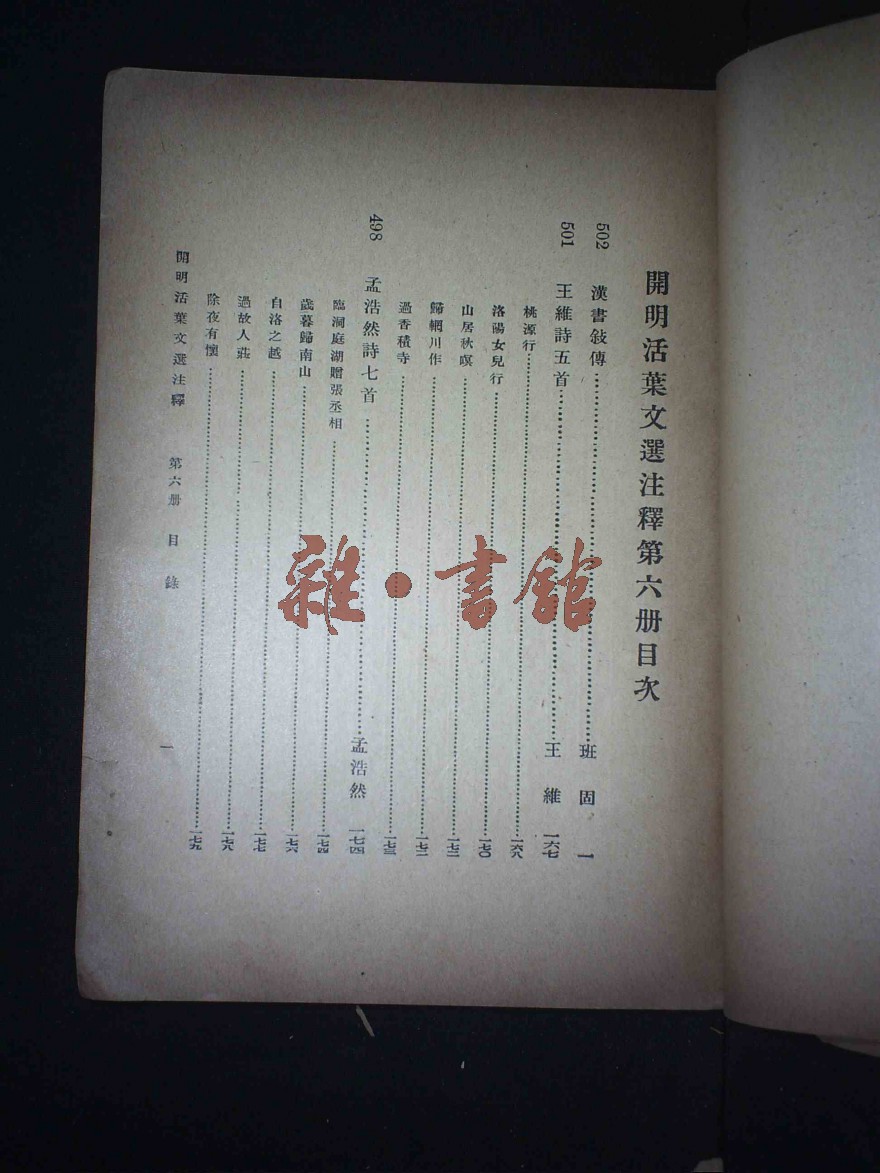 開明活葉文選注釋第六册目次
502 漢書敍傳 班固 一
501 王維詩五首 王維 一六七
桃源行 一六八
洛陽女兒行 一七〇
山居秋暝 一七二
歸輞川作 一七二
過香積寺 一七三
498 孟浩然詩七首 孟浩然 一七四
臨洞庭湖贈張丞相 一七四
歲暮歸南山 一七六
自洛之越 一七七
過故人莊 一七八
除夜有懷 一七九
開明活葉文選注釋 第六册 目錄 一
雜·書館